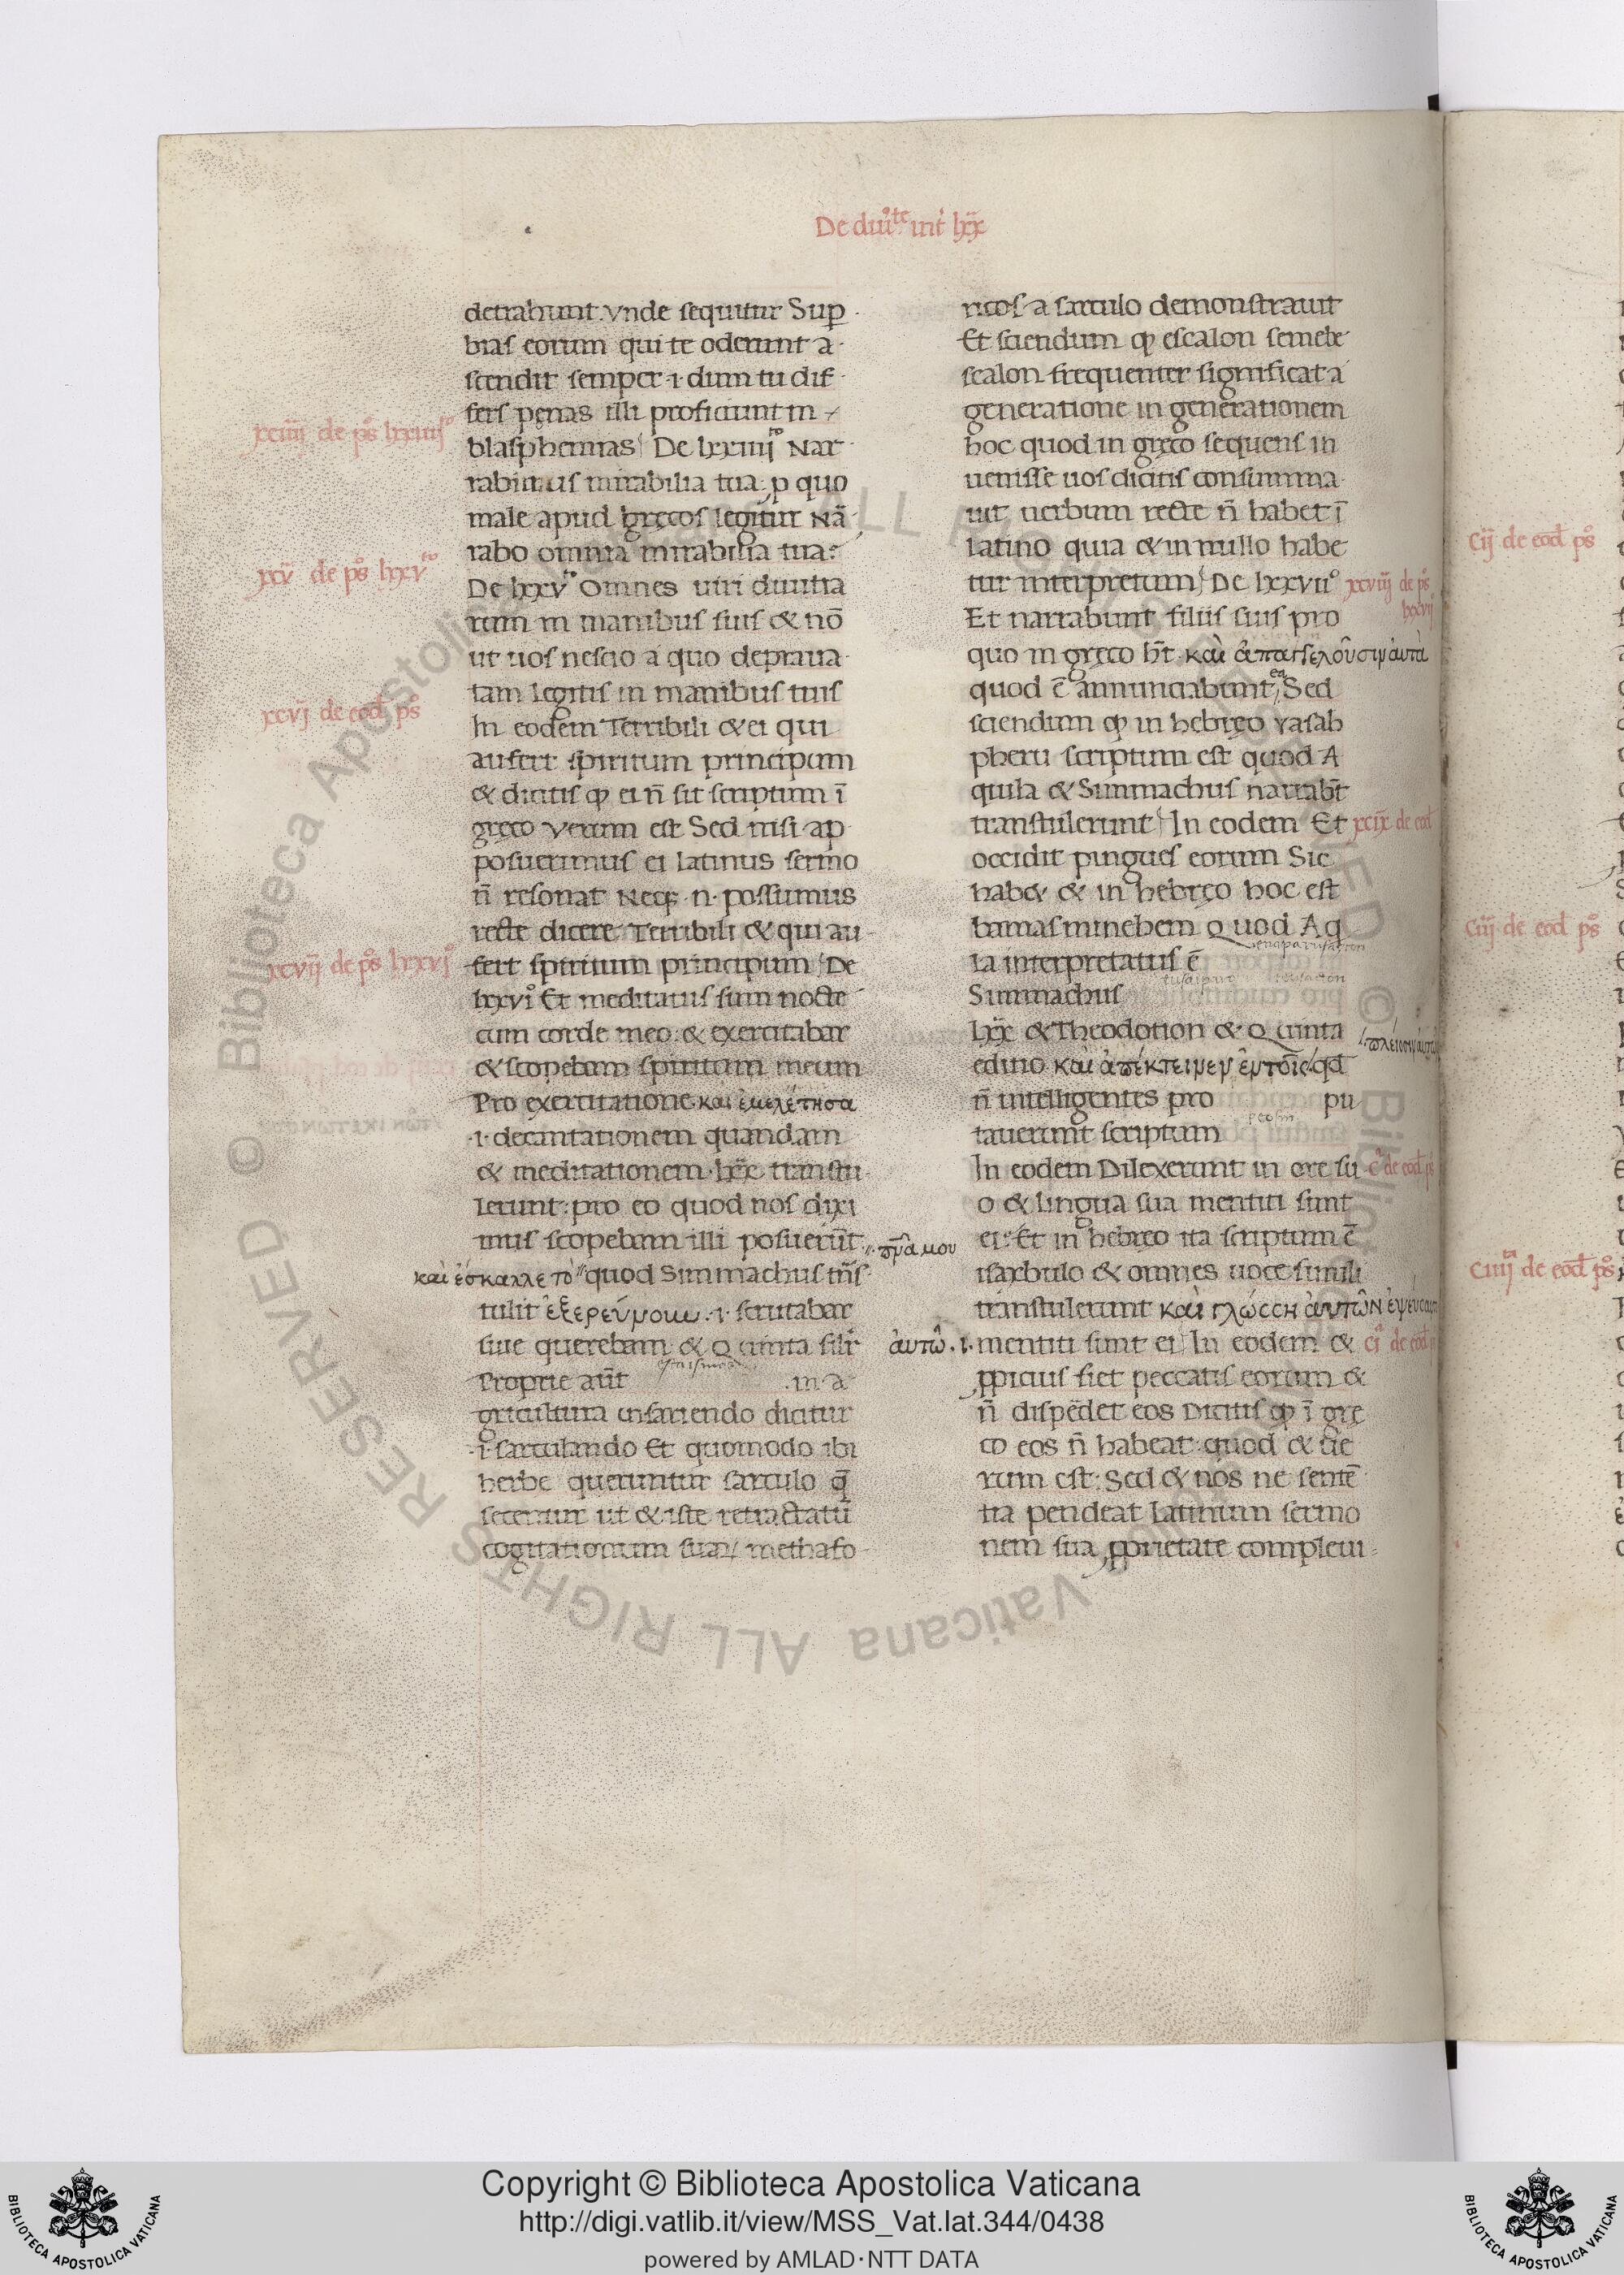 De diu'te int' lxx
detrahunt. vnde sequitur Sup
bias eorum qui te oderunt a
scendit semper .i. dum tu dif
fers penas illi proficiunt in
xciiij de ps lxxiiijº
blasphemias De lxxiiijto Nar
rabimus mirabilia tua: p quo
male apud gręcos legitur Nā
rabo omnia mirabilia tua:
xcv de ps lxxvto
De lxxvto Omnes uiri diuitia
rum in manibus suis & nō
ut uos nescio a quo depraua
tam legitis in manibus tuis
xcvj de eod ps
In eodem Terribili & ei qui
aufert spiritum principum
& dicitis qp ei n̄ sit scriptum ī
gręco Verum est Sed nisi ap
posuerimus ei latinus sermo
n̄ resonat Neq; .n. possumus
recte dicere Terribili & qui au
xcvij de ps lxxvjº
fert spiritum principum De
lxxviº Et meditatus sum nocte
cum corde meo: & exercitabar
& scopebam spiritum meum
Pro exercitatione καὶ ἐμελέτησα
.i. decantationem quandam
& meditationem lxx transtu
lerunt: pro eo quod nos dixi
mus scopebam illi posuerūt
καὶ ἐσκαλλετο πν̄ᾶ μου quod Simmachus trās
tulit ἐξερεύνουν .i. scrutabar
siue querebam & Quinta silīr
Proprie aūt .in a
gricultura in sariendo dicitur
.i. sarculando Et quomodo ibi
herbe queruntur sarculo q̄
secentur ut & iste retractatū
cogitationum suar, methafo
ricos a sarculo demonstrauit
Et sciendum qp escalon semel &
scalon frequenter significat a
generatione in generationem
hoc quod in gręco sequens in
uenisse uos dicitis consumma
uit uerbum recte n̄ habet ī
latino quia & in nullo habe
tur interpretum De lxxviiº xcviij de ps
lxxvij
Et narrabunt filiis suis pro
quo in gręco hn̄t καὶ ἀπαγγελοῦσιν αὐτὰ
quod ē annunciabunt ea Sed
sciendum qp in hebręo Yasab
pheru scriptum est quod A
quila & Simmachus narrabn̄t
transtulerunt In eodem Et xcix de eod
occidit pingues eorum Sic
hab& & in hebręo hoc est
bamasminehem Quod Aq
la interpretatus ē
Simmachus
lxx & Theodotion & Quinta
editio καὶ ἀπέκτεινεν ἐν τοῖς πλείοσιν αὐτῶν qd
n̄ intelligentes pro pu
tauerunt scriptum
In eodem Dilexerunt in ore su cº de eod ps
o & lingua sua mentiti sunt
ei: Et in hebręo ita scriptum ē
isaxbulo & omnes uoce simili
transtulerunt καὶ γλώσσῃ αυτῶν ἐψεύσαντο
ἀυτῶ .i. mentiti sunt ei In eodem & cj de eod p
ppicius fiet peccatis eorum &
n̄ dispēdet eos Dicitis qp ī grę
co eos n̄ habeat: quod & ue
rum est: Sed & nos ne sentē
tia pendeat latinum sermo
nem sua pprietate compleui
Cij de eod ps
Ciij de eod ps
Ciiij de eod ps
Copyright © Biblioteca Apostolica Vaticana
http://digi.vatlib.it/view/MSS_Vat.lat.344/0438
powered by AMLAD·NTT DATA
BIBLIOTECA APOSTOLICA VATICANA
BIBLIOTECA APOSTOLICA VATICANA
© Biblioteca Apostolica Vaticana ALL RIGHTS RESERVED